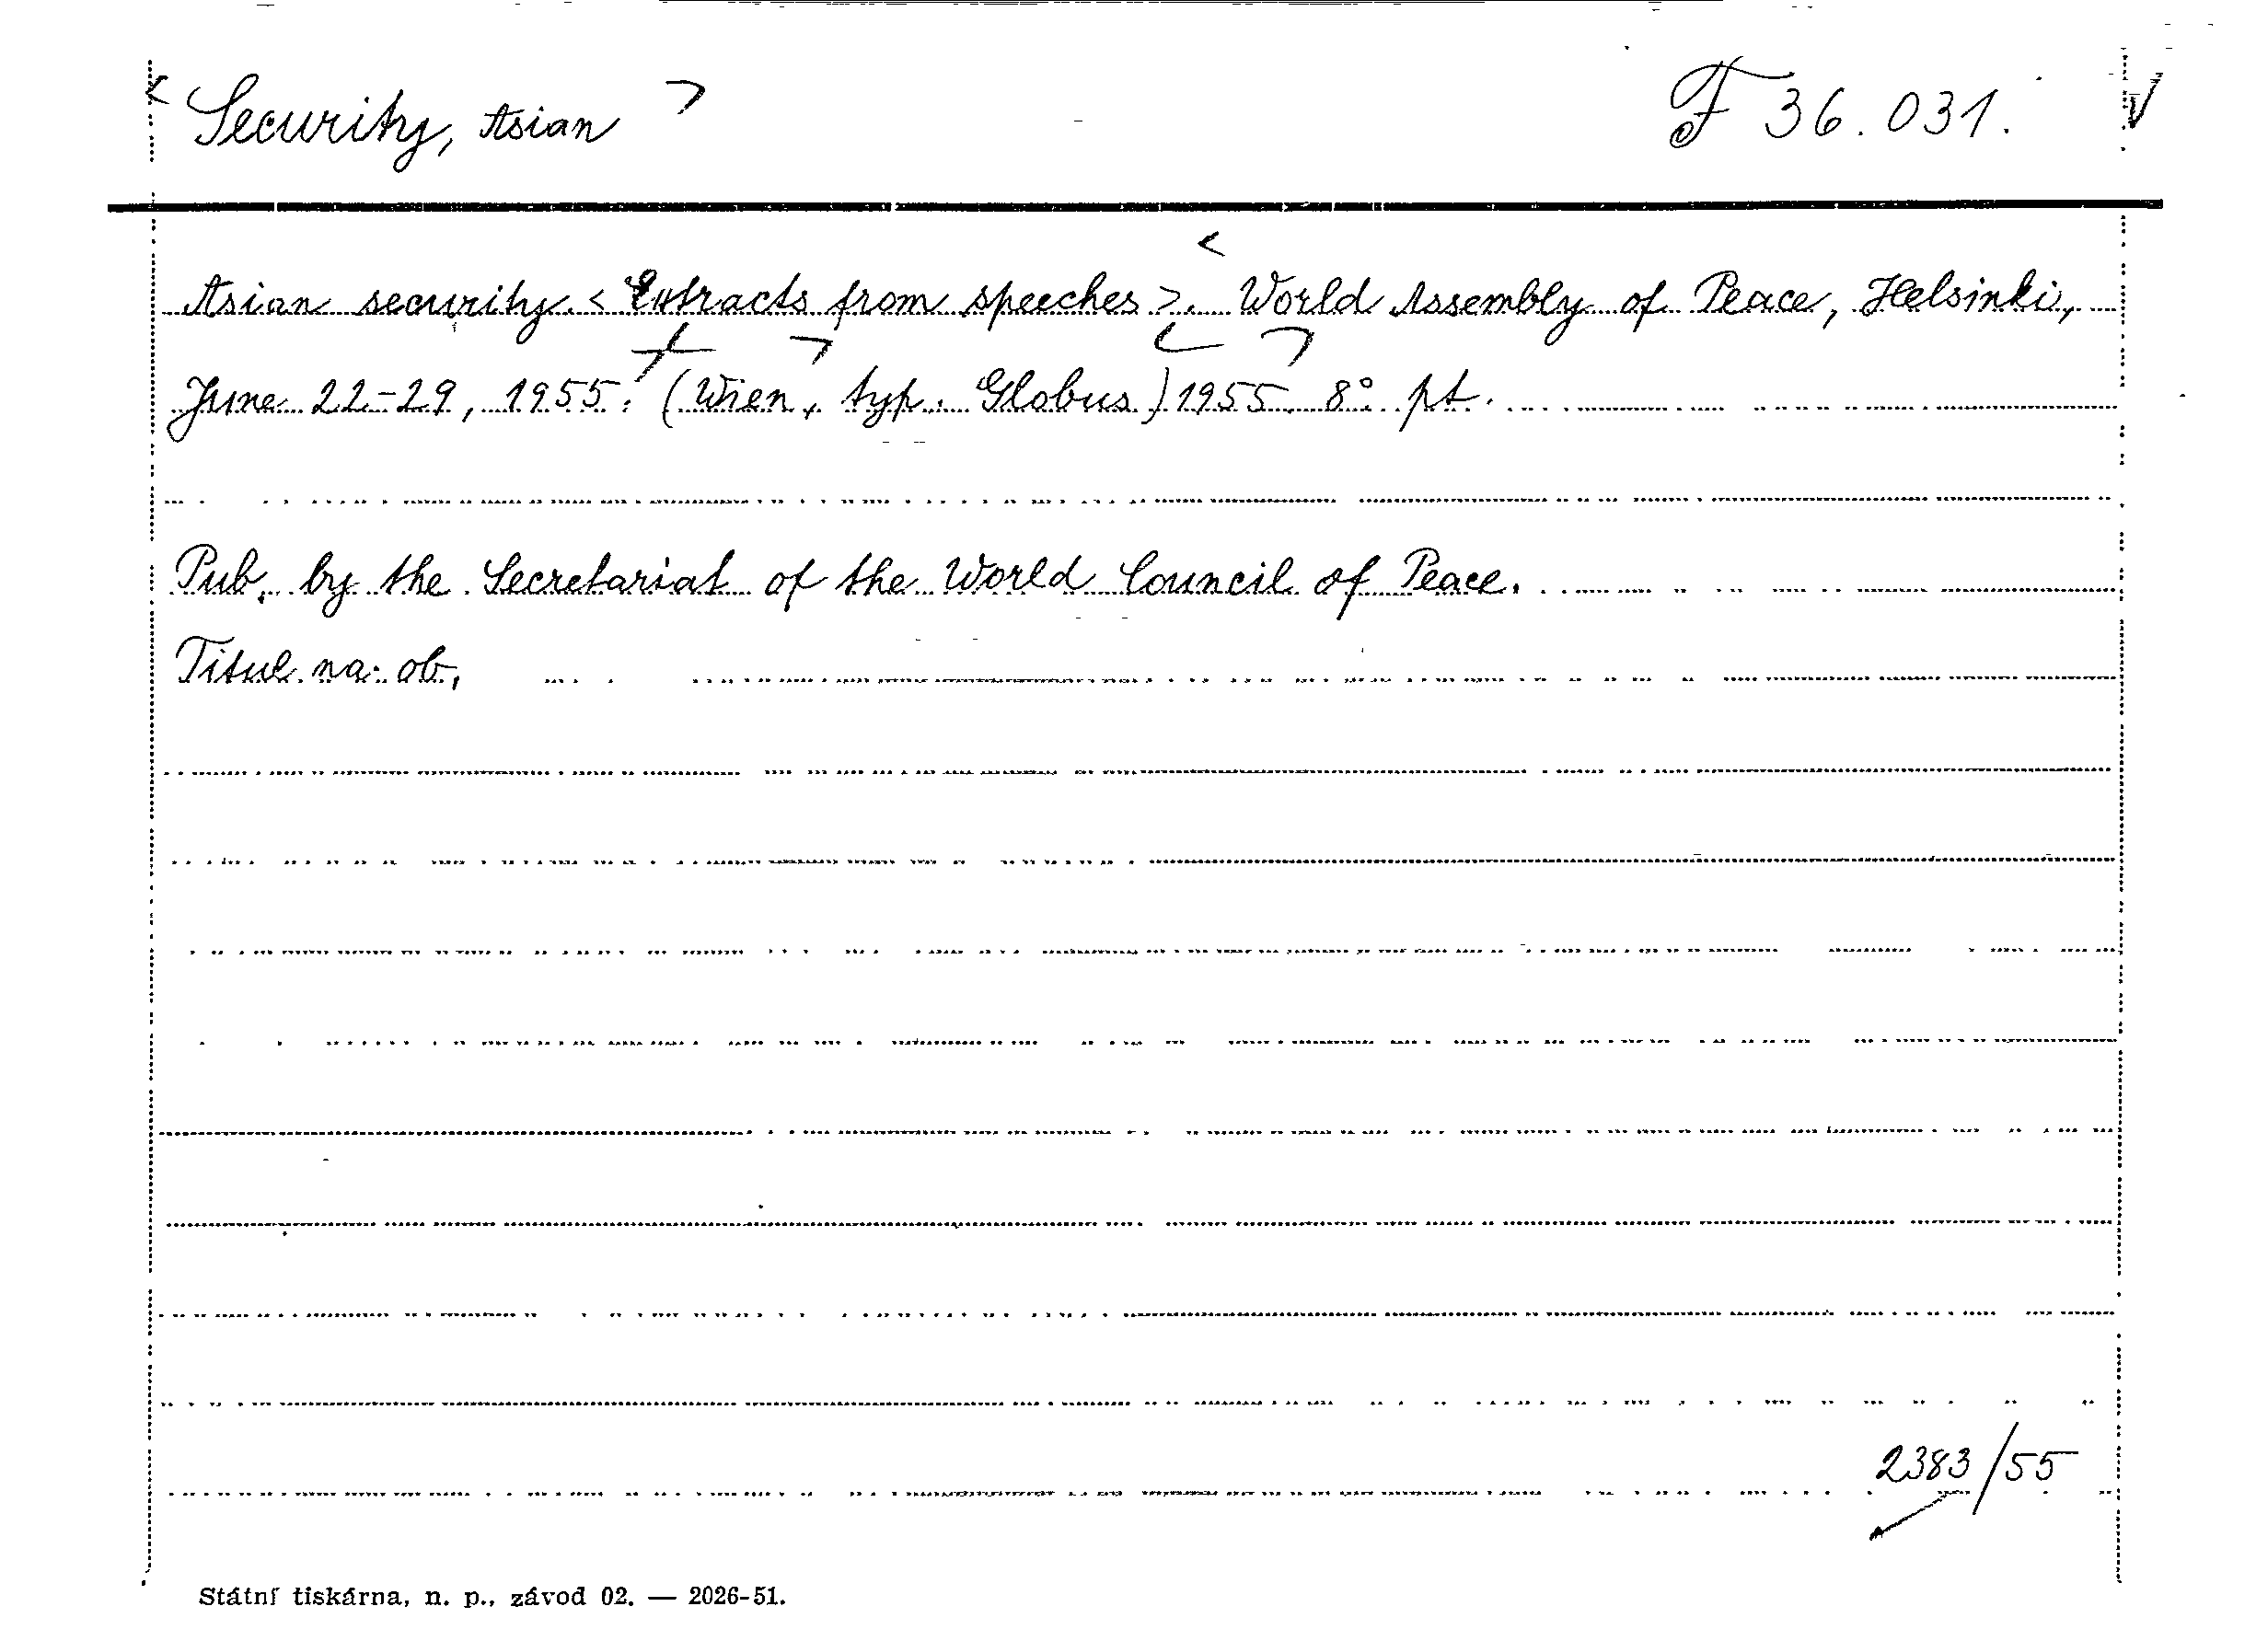 < Security, Asian > F 36.031. V
Asian security. < Extracts from speeches >. < World Assembly of Peace, Helsinki,
June 22-29, 1955. (Wien, typ. Globus) 1955. 8° pt.
Pub. by the Secretariat of the World Council of Peace.
Titul na ob.
2383/55
Státní tiskárna, n. p., závod 02. — 2026-51.